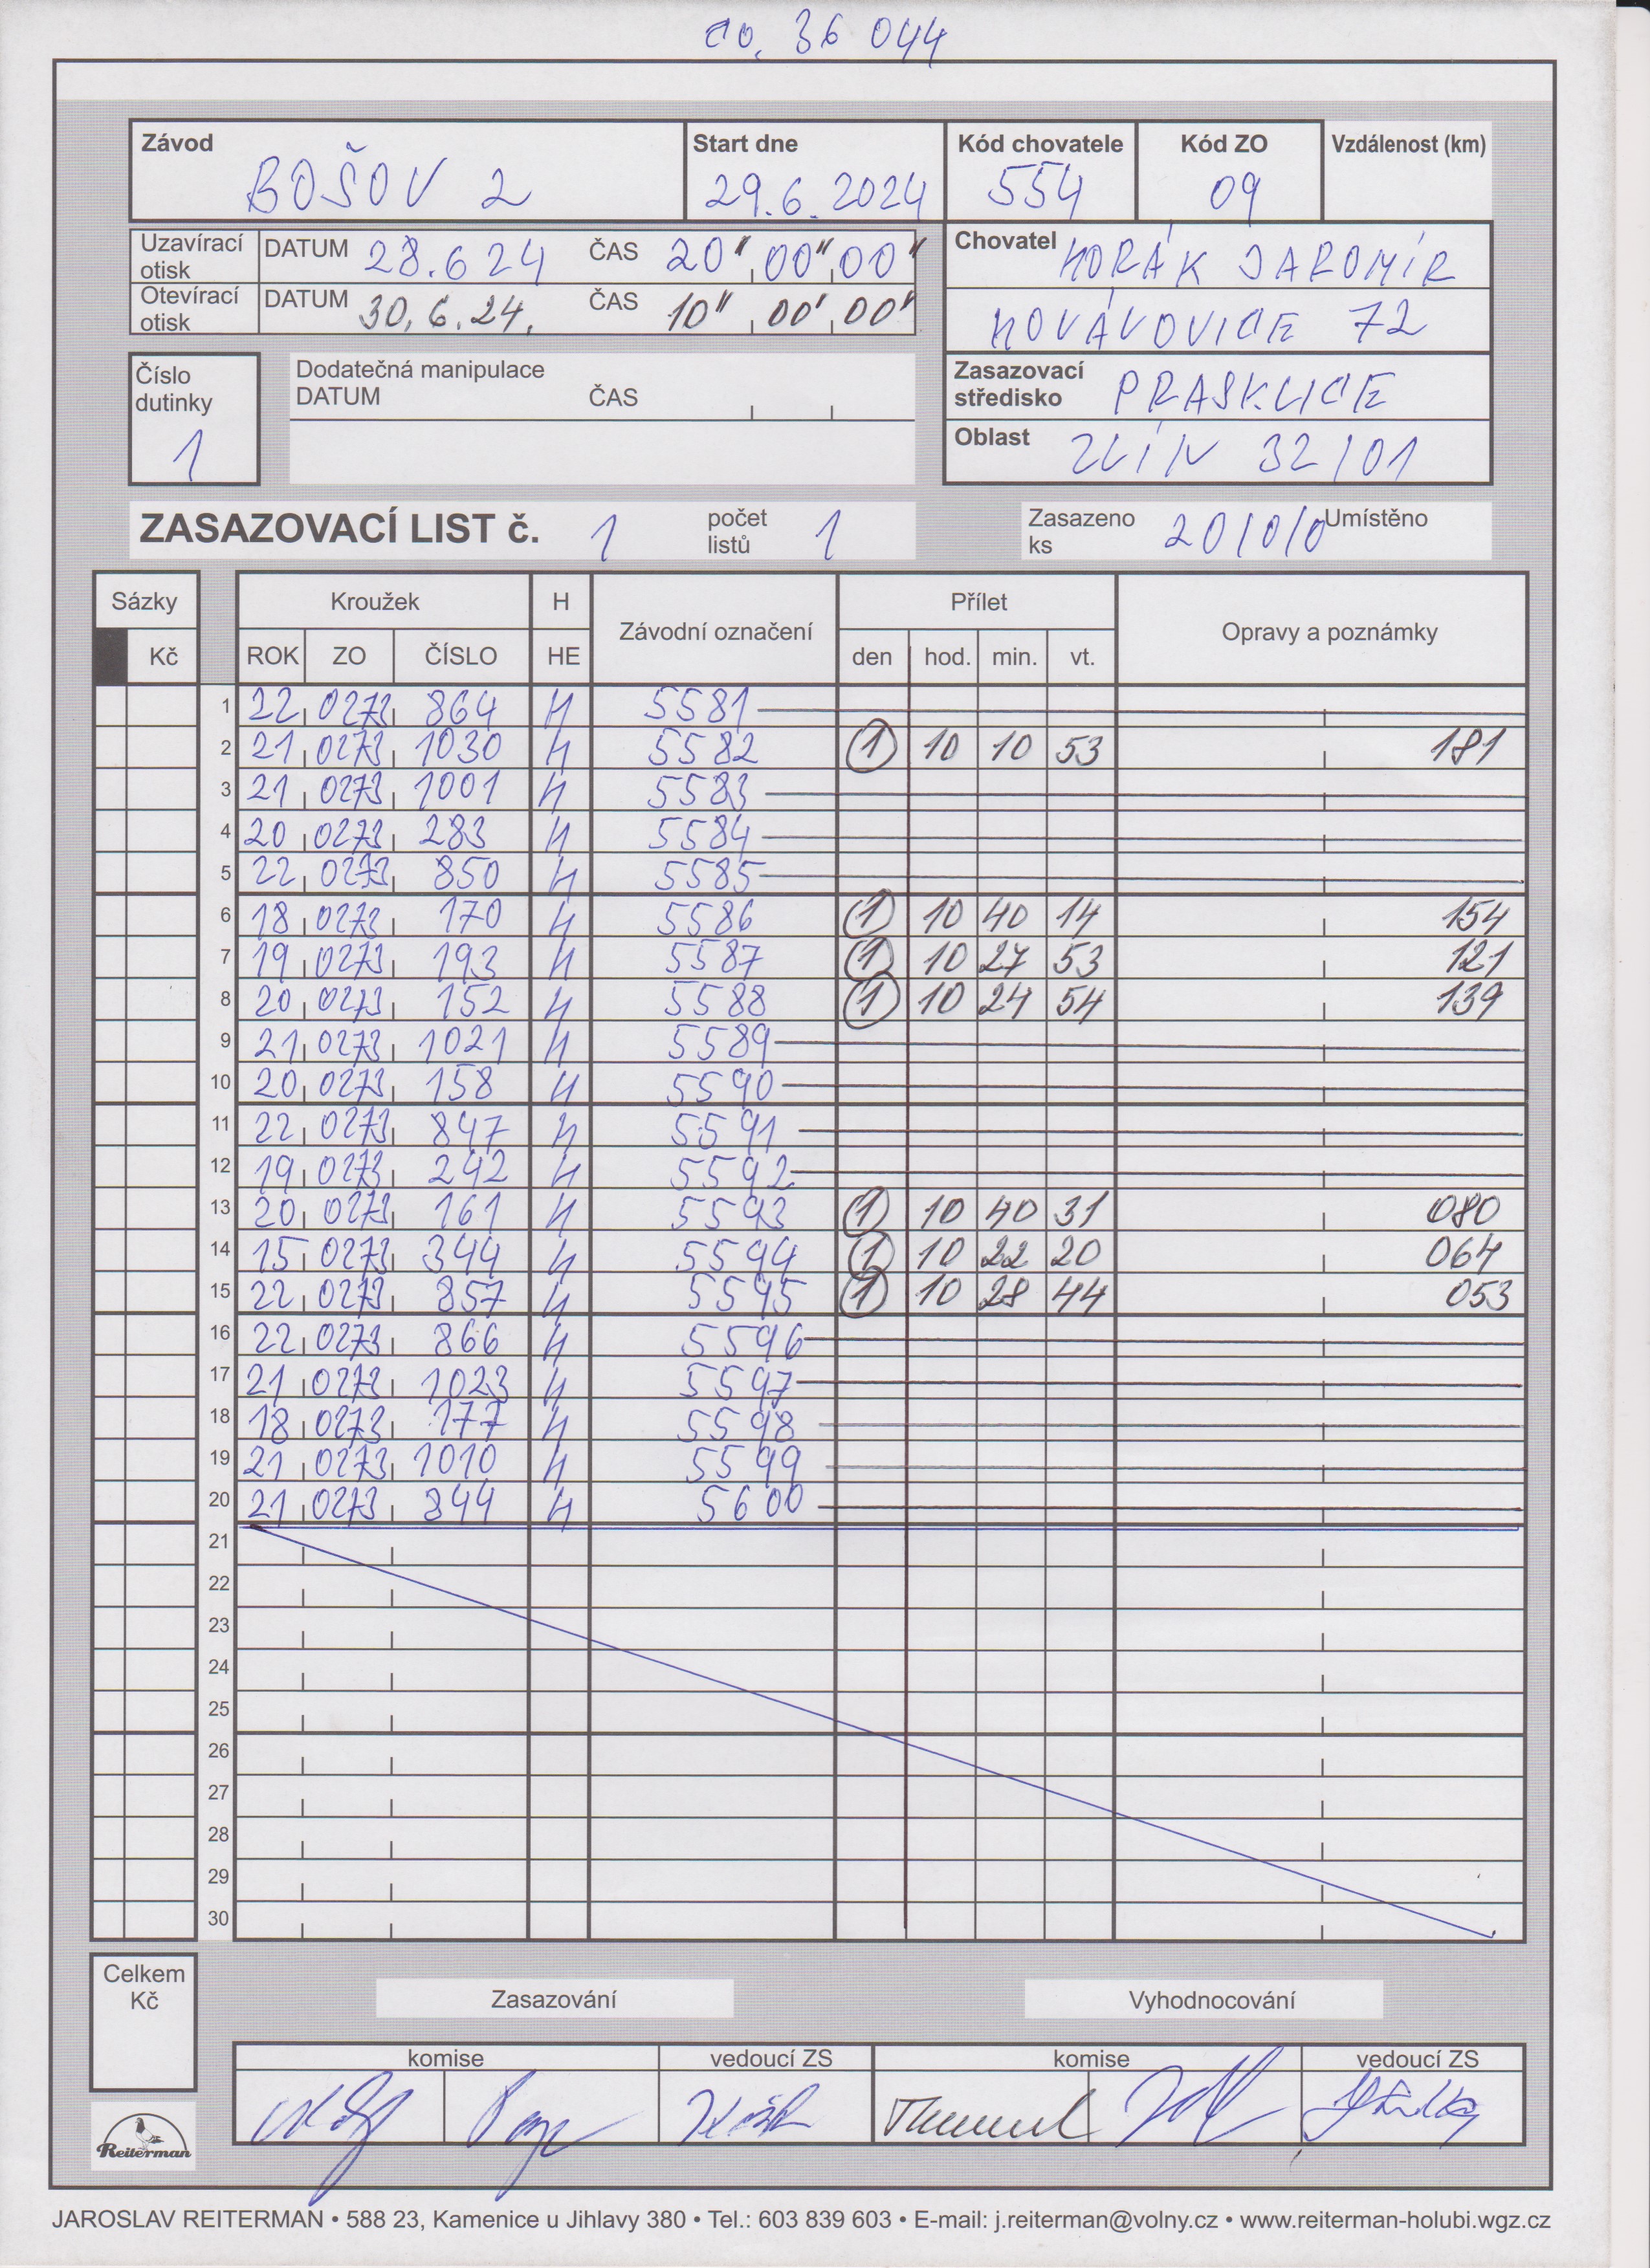 čo. 36 044
Závod Start dne Kód chovatele Kód ZO Vzdálenost (km)
BOŠOV 2 29.6.2024 554 09
Uzavírací otisk DATUM 28.6 24 ČAS 20" 00" 00"
Otevírací otisk DATUM 30.6.24. ČAS 10" 00' 00'
Chovatel HORÁK JAROMÍR
72
Číslo dutinky 1
Dodatečná manipulace
DATUM ČAS
Zasazovací středisko PRASKLICE
Oblast ZLÍN 32/01
ZASAZOVACÍ LIST č. 1 počet listů 1 Zasazeno ks 20/0/0 Umístěno
Sázky Kroužek H Závodní označení Přílet Opravy a poznámky
Kč ROK ZO ČÍSLO HE den hod. min. vt.
1 22 0273 864 H 5581
2 21 0273 1030 H 5582 1 10 10 53 181
3 21 0273 1001 H 5583
4 20 0273 283 H 5584
5 22 0273 850 H 5585
6 18 0273 170 H 5586 1 10 40 14 154
7 19 0273 193 H 5587 1 10 27 53 121
8 20 0273 152 H 5588 1 10 24 54 139
9 21 0273 1021 H 5589
10 20 0273 158 H 5590
11 22 0273 847 H 5591
12 19 0273 242 H 5592
13 20 0273 161 H 5593 1 10 40 31 080
14 15 0273 344 H 5594 1 10 22 20 064
15 22 0273 857 H 5595 1 10 28 44 053
16 22 0273 866 H 5596
17 21 0273 1023 H 5597
18 18 0273 177 H 5598
19 21 0273 1010 H 5599
20 21 0273 844 H 5600
21
22
23
24
25
26
27
28
29
30
Celkem Kč
Zasazování Vyhodnocování
komise vedoucí ZS komise vedoucí ZS
Reiterman
JAROSLAV REITERMAN • 588 23, Kamenice u Jihlavy 380 • Tel.: 603 839 603 • E-mail: j.reiterman@volny.cz • www.reiterman-holubi.wgz.cz